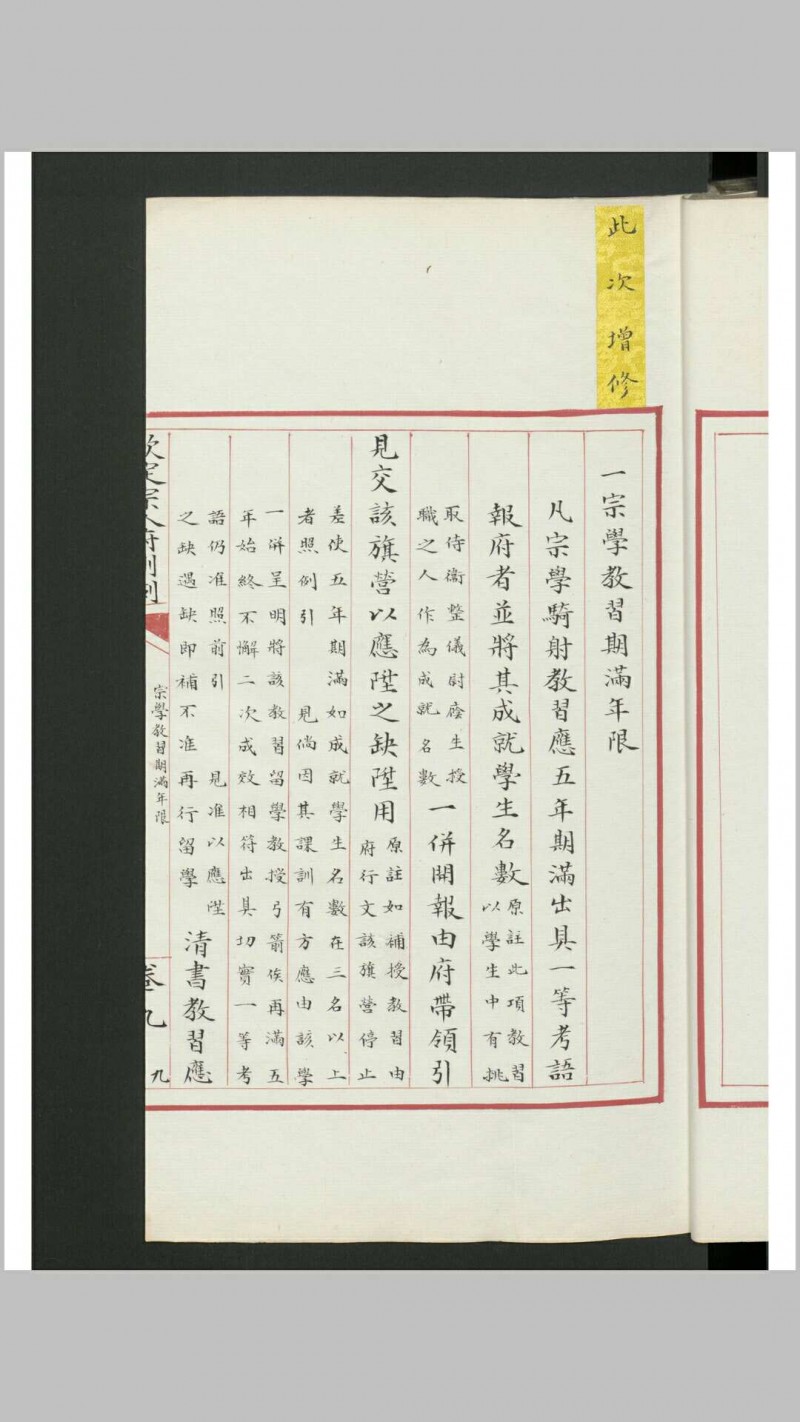 此次增修
一宗學教習期滿年限
凡宗學騎射教習應五年期滿出具一等考語
報府者並將其成就學生名數
原註此項教習
以學生中有挑
取侍衛整儀尉廕生授
職之人作為成就名數
一併開報由府帶領引
見交該旗營以應陞之缺陞用
原註如補授教習由
府行文該旗營停止
差使五年期滿如成就學生名數在三名以上
者照例引 見倘因其課訓有方應由該學
一併呈明將該教習留學教授弓箭俟再滿五
年始終不懈二次成效相符出具切實一等考
語仍准照前引 見准以應陞
之缺遇缺即補不准再行留學
清書教習應
欽定宗人府則例
宗學教習期滿年限
卷九
九